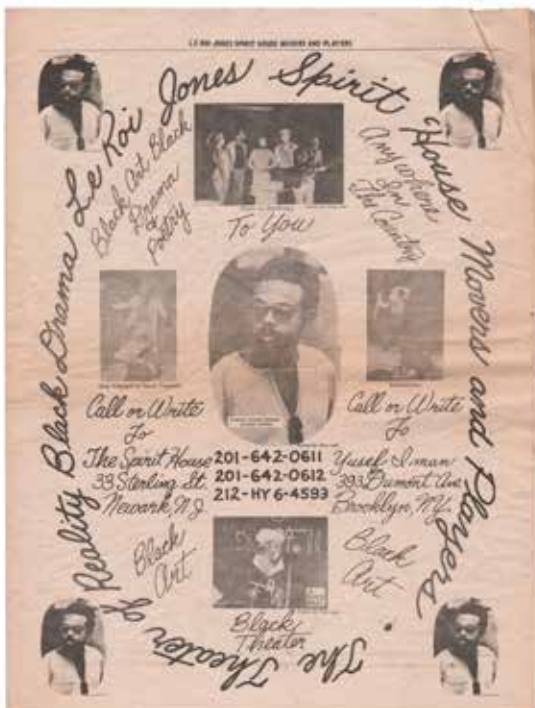 LE ROI JONES SPIRIT HOUSE MOVERS AND PLAYERS
The Theater of Reality Black Drama Le Roi Jones Spirit House Movers and Players
Black Art Black
Drama
Poetry
Anywhere
In
The Country
To You
Call or Write
To
The Spirit House
33 Sterling St.
Newark, N.J.
201-642-0611
201-642-0612
212-HY 6-4593
Call or Write
To
Yusef Iman
393 Dumont Ave.
Brooklyn, N.Y.
Black
Art
Black
Art
Black
Theater